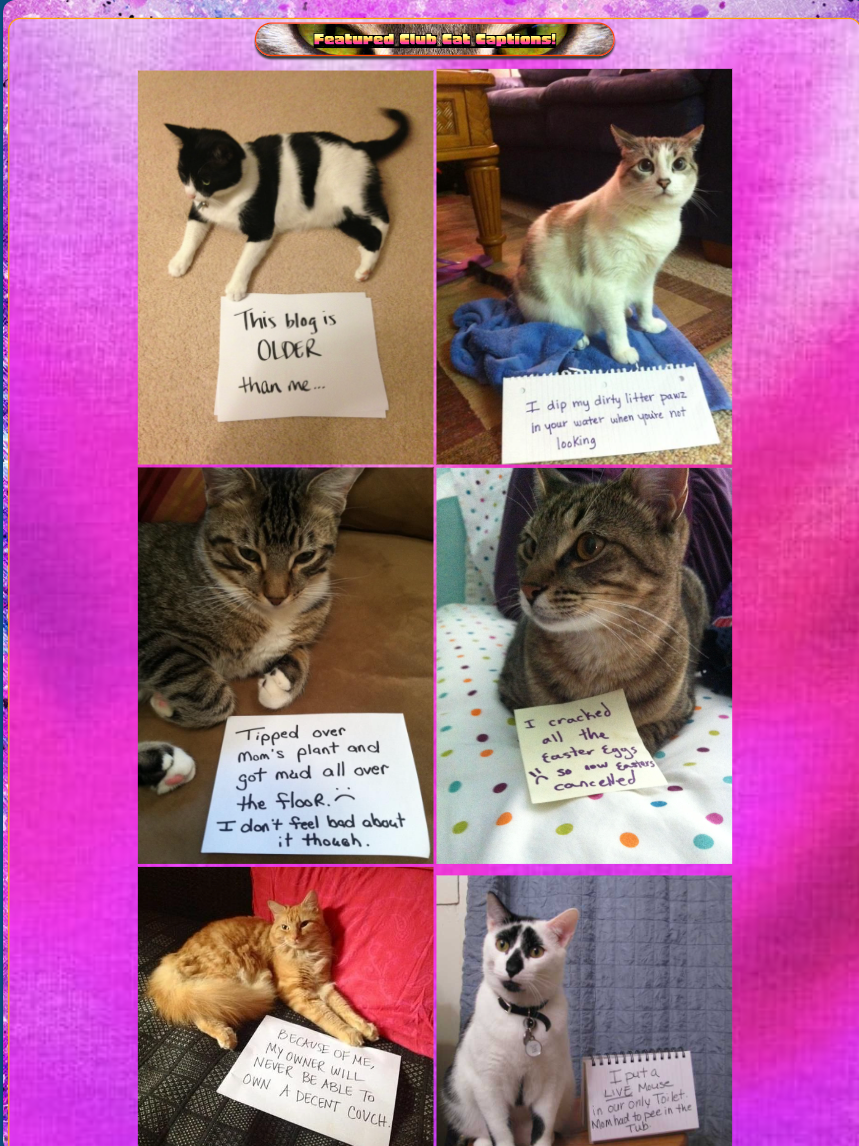 Featured Club Cat Captions!
This blog is
OLDER
than me...
I dip my dirty litter pawz
in your water when you're not
looking
Tipped over
Mom's plant and
got mud all over
the flooR. :(
I don't feel bad about
it though.
I cracked
all the
Easter Eggs
:( so now Easters
cancelled
BECAUSE OF ME,
MY OWNER WILL
NEVER BE ABLE TO
OWN A DECENT COUCH.
I put a
LIVE Mouse
in our only Toilet.
Mom had to pee in the
Tub.